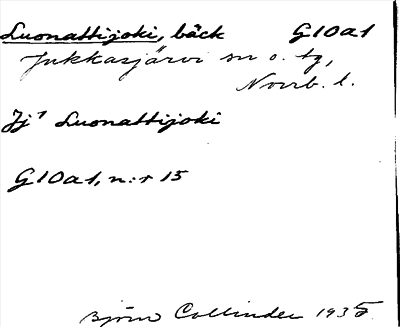 Luonattijoki, bäck G10a1
Jukkasjärvi sn o. tg,
Norrb. l.
Jj¹ Luonattijoki
G10a1, n:r 15
Björn Collinder 1935